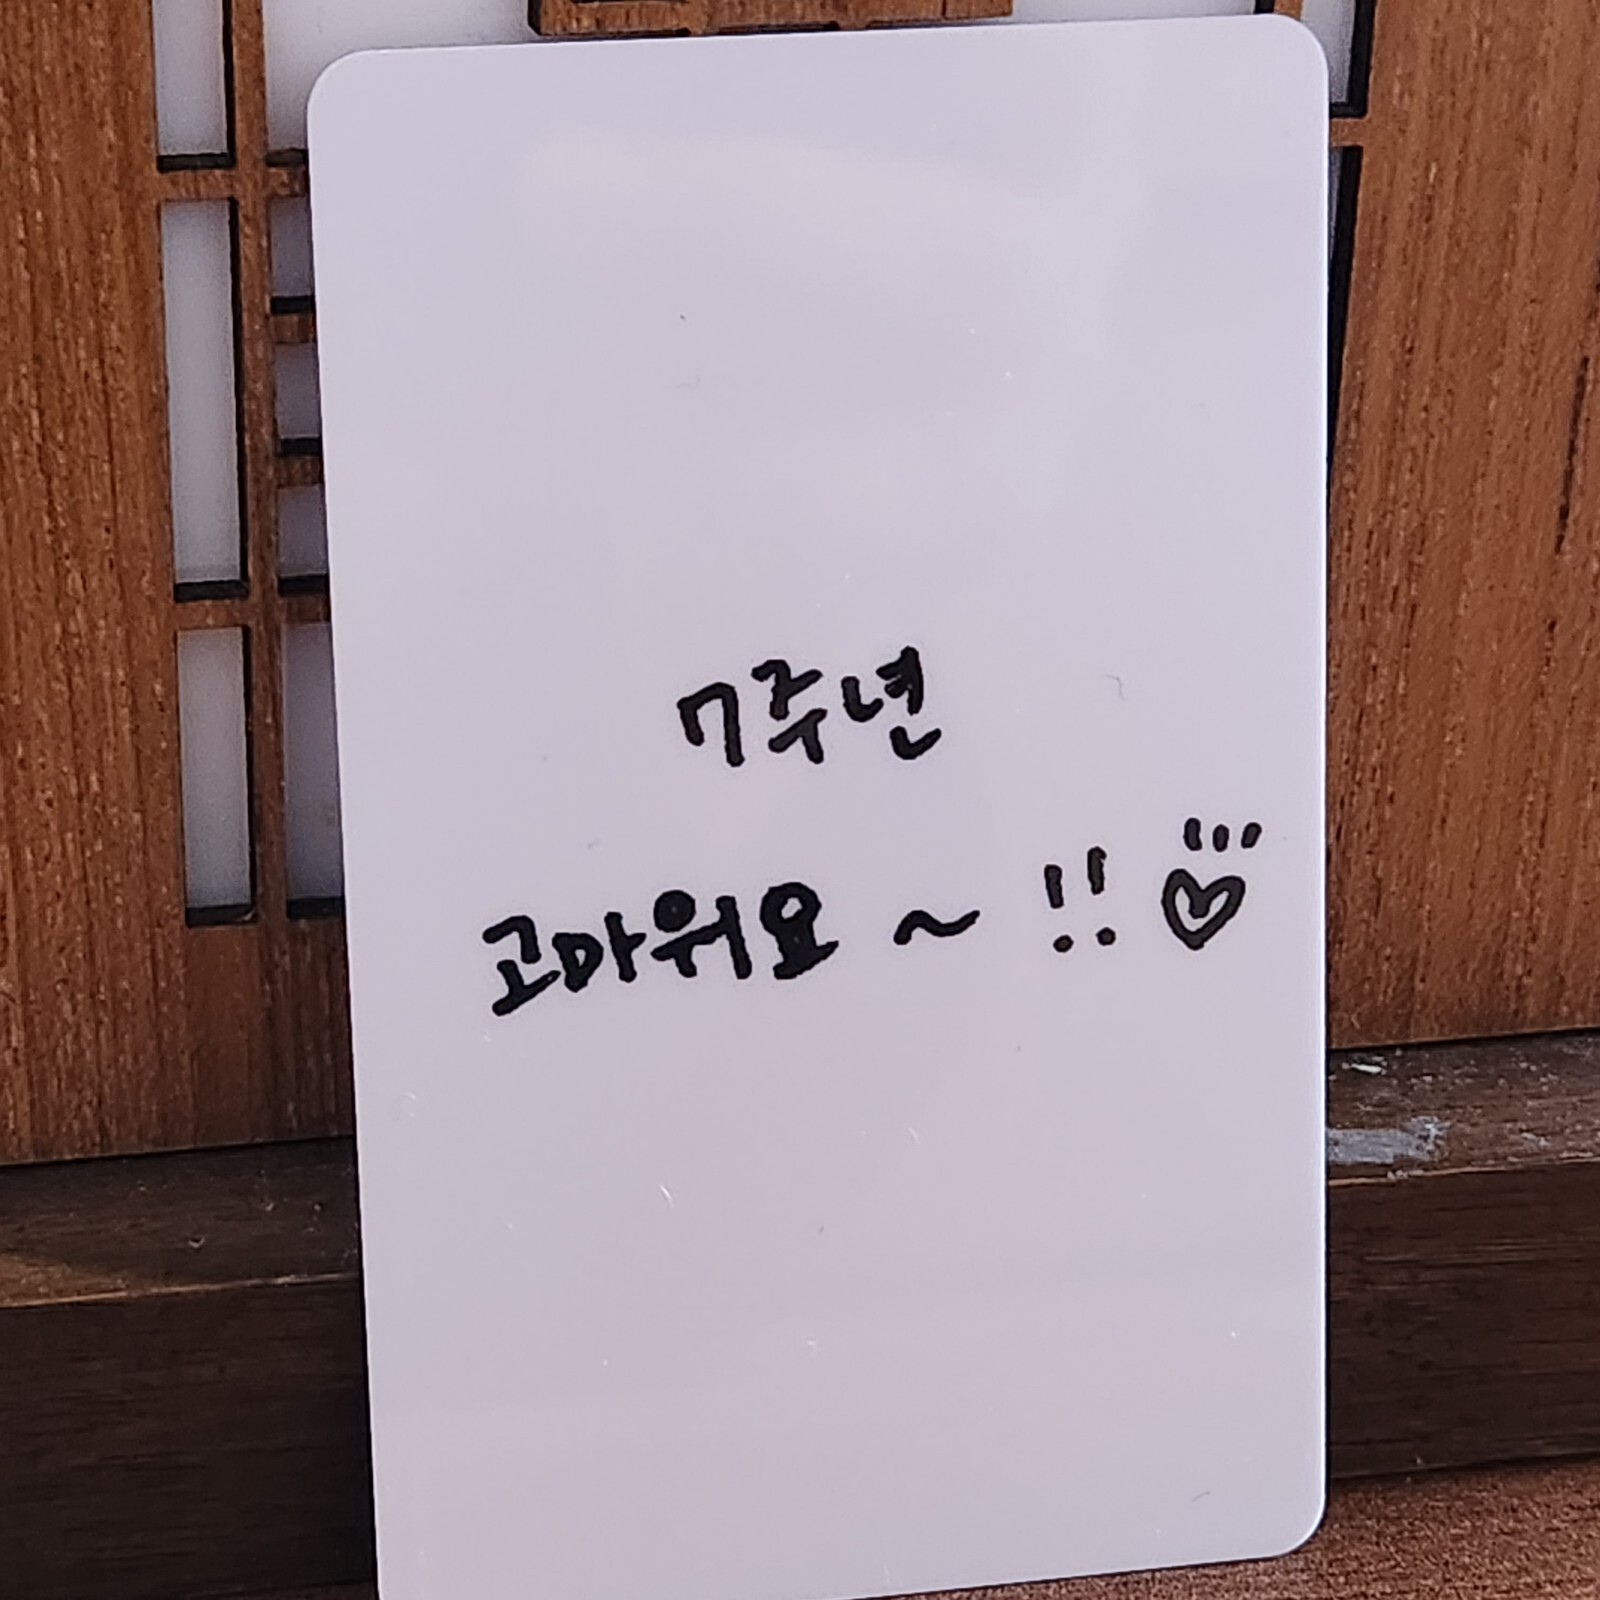 7주년
고마워요 ~ !! ♡